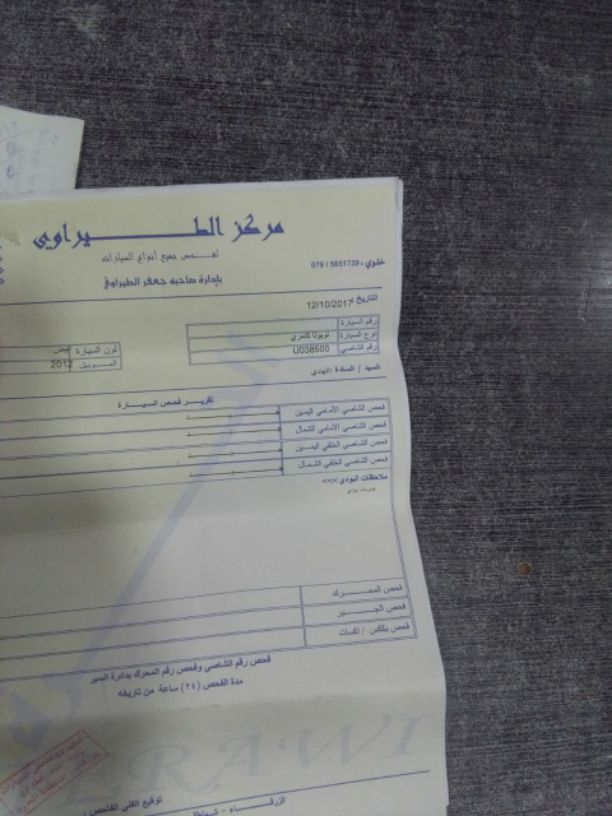 مركز الطيراوي
لفحص جميع أنواع السيارات
خلوي : 5651739 / 079
بإدارة صاحبه جعفر الطيراوي
التاريخ : 12/10/2017
رقم السيارة
نوع السيارة تويوتا كامري لون السيارة
رقم الشاصي U038500 الموديل 2012
السيد / السادة :
تقرير فحص السيارة
فحص الشاصي الأمامي اليمين
فحص الشاصي الأمامي الشمال
فحص الشاصي الخلفي اليمين
فحص الشاصي الخلفي الشمال
ملاحظات البودي >>>
ضربات بودي
فحص المحرك
فحص الجير
فحص بكاس / اكسات
فحص رقم الشاصي وفحص رقم المحرك بدائرة السير
مدة الفحص (٢٤) ساعة من تاريخه
ERAWI
توقيع الفني الفاحص :
الزرقاء -